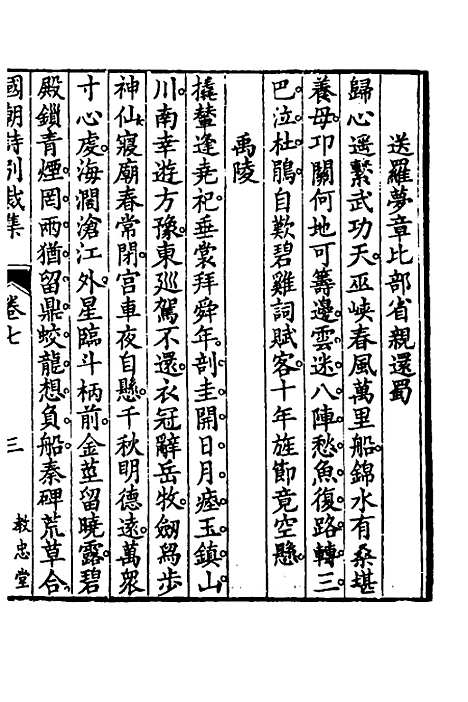 送羅夢章比部省親還蜀
歸心遥繫武功天。巫峽春風萬里船。錦水有桑堪
養母。邛關何地可籌邊。雲迷八陣愁魚復。路轉三
巴泣杜鵑。自歎碧雞詞賦客。十年旌節竟空懸。
禹陵
撬輂逢堯祀。垂裳拜舜年。剖圭開日月。瘞玉鎮山
川。南幸遊方豫。東巡駕不還。衣冠辭岳牧。劒舄步
神仙。寢廟春常閉。宮車夜自懸。千秋明德遠。萬衆
寸心處。海濶滄江外。星臨斗柄前。金莖留曉露。碧
殿鎖青煙。罔兩猶留鼎。蛟龍想負船。秦碑荒草合。
國朝詩別裁集 卷七 三 教忠堂